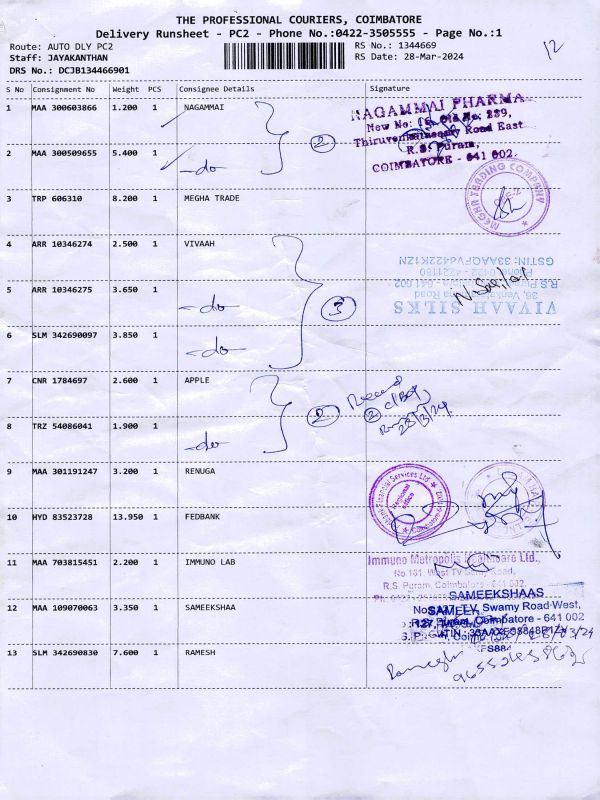 THE PROFESSIONAL COURIERS, COIMBATORE
Delivery Runsheet - PC2 - Phone No.:0422-3505555 - Page No.:1
Route: AUTO DLY PC2
RS No.: 1344669
12
Staff: JAYAKANTHAN
RS Date: 28-Mar-2024
DRS No.: DCJB134466901
S No Consignment No Weight PCS Consignee Details Signature
1 MAA 300603866 1.200 1 NAGAMMAI
NAGAMMAI PHARMA
New No: Old No: 239,
Road East
R.S. Puram,
COIMBATORE - 641 002.
2
2 MAA 300509655 5.400 1 -do-
3 TRP 606310 8.200 1 MEGHA TRADE
MEGHA TRADING COMPANY
4 ARR 10346274 2.500 1 VIVAAH
VIVAAH SILKS
5 ARR 10346275 3.650 1 -do-
3
6 SLM 342690097 3.850 1 -do-
7 CNR 1784697 2.600 1 APPLE
2
2
28/3/24
8 TRZ 54086041 1.900 1 -do-
9 MAA 301191247 3.200 1 RENUGA
Financial Services Ltd
Regional
Office
10 HYD 83523728 13.950 1 FEDBANK
11 MAA 703815451 2.200 1 IMMUNO LAB
Immuno Metropolis Healthcare Ltd.,
R.S. Puram, Coimbatore - 641 002.
12 MAA 109070063 3.350 1 SAMEEKSHAA
SAMEEKSHAAS
T.V. Swamy Road West,
Coimbatore - 641 002
13 SLM 342690830 7.600 1 RAMESH
Ramesh